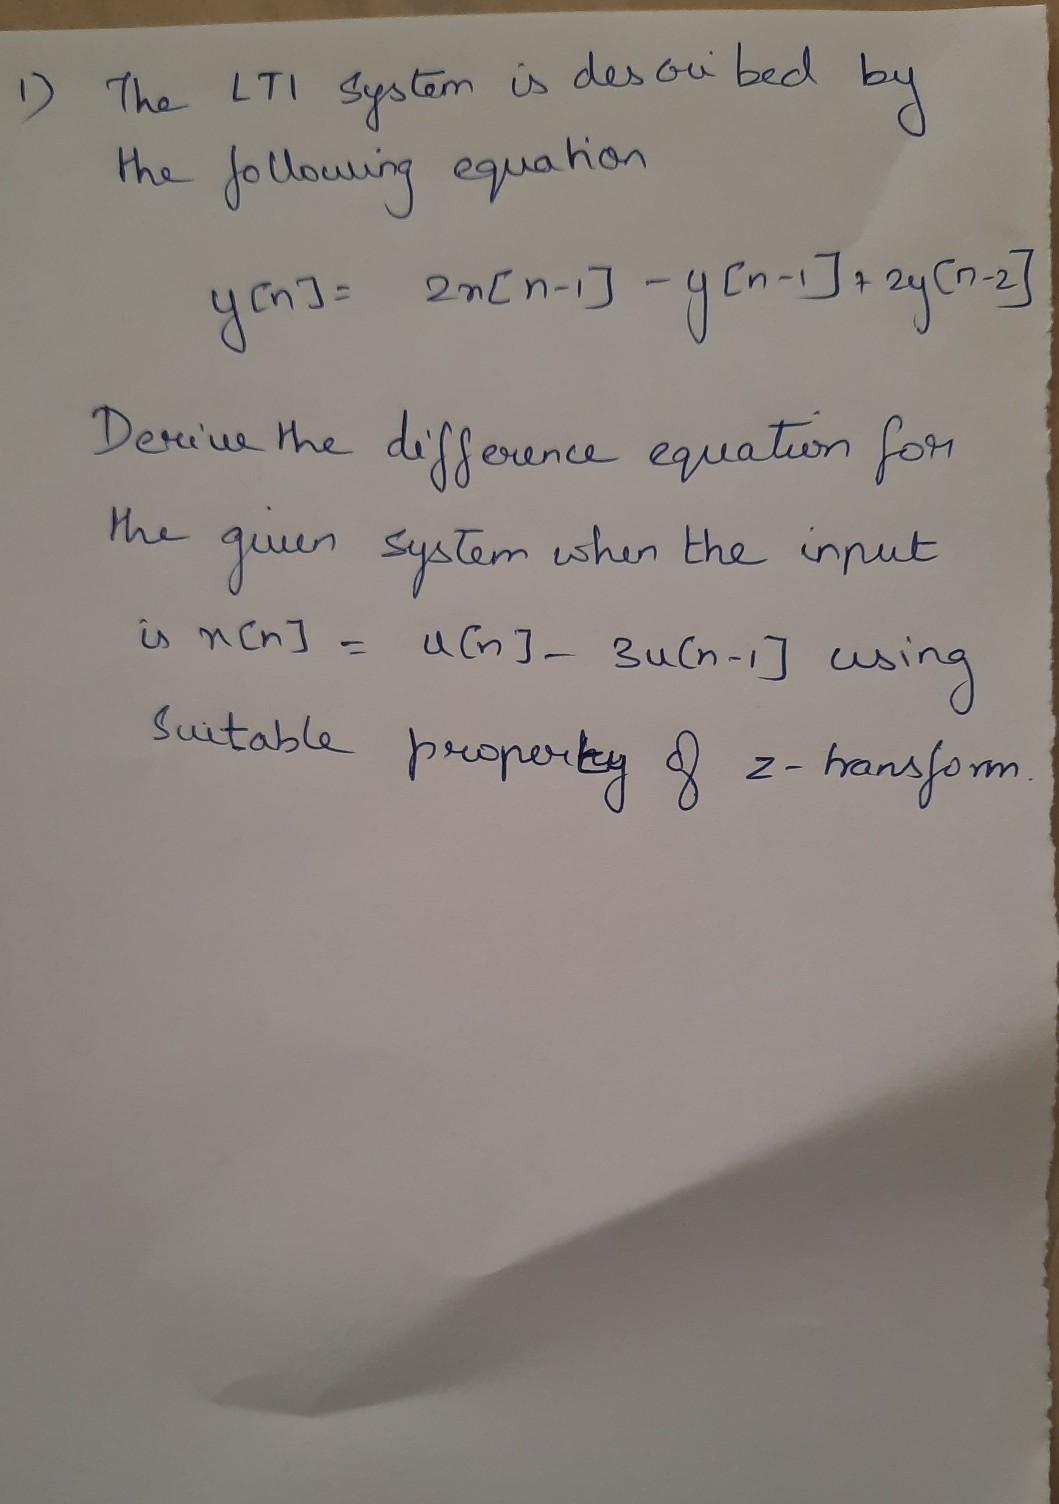 1) The LTI System is described by
the following equation
y[n] = 2x[n-1] - y[n-1] + 2y[n-2]
Derive the difference equation for
the given system when the input
is x[n] = u[n] - 3u[n-1] using
Suitable property of z-transform.